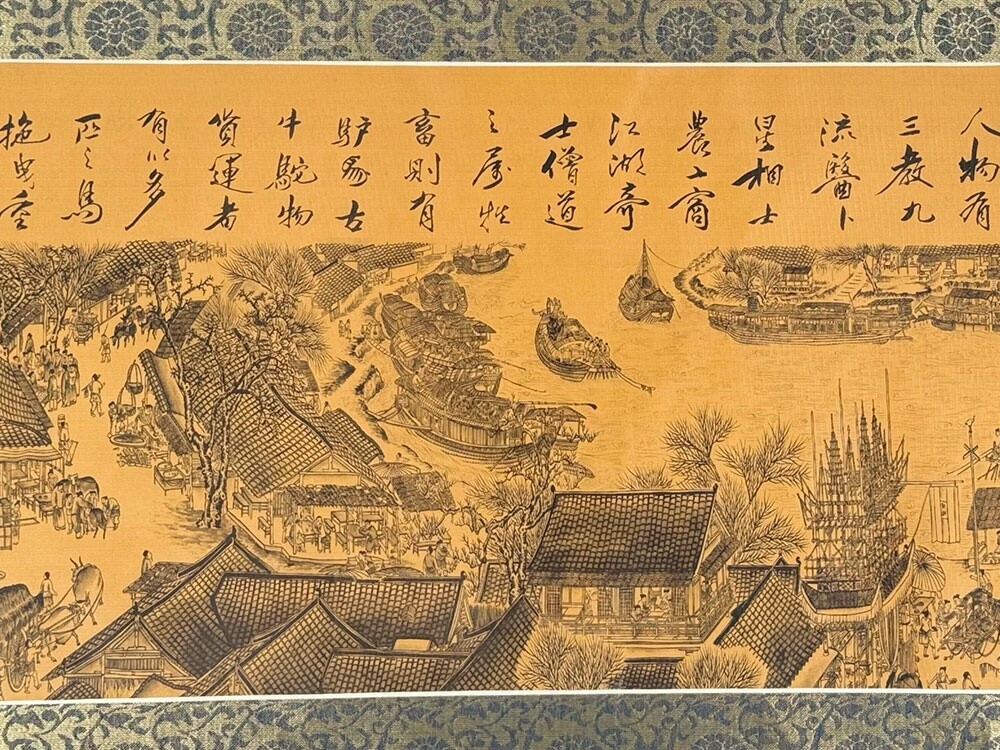 人物有
三教九
流醫卜
星相士
農工商
江湖奇
士僧道
之屬牲
畜則有
驴騾古
牛駝物
貨運者
有以多
匹之馬
拖曳重